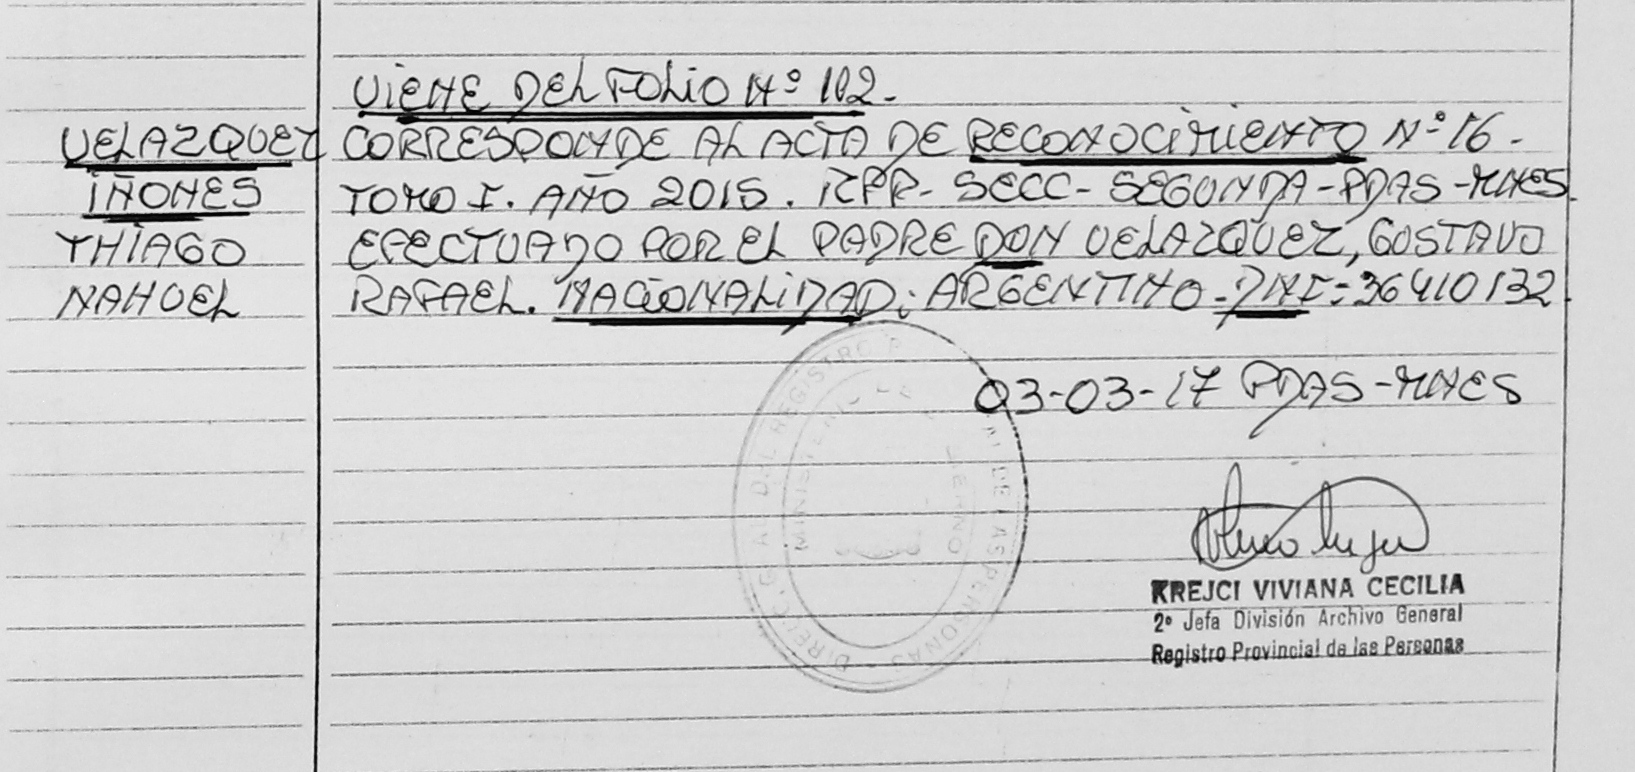 VIENE DEL FOLIO Nº 102.-
VELAZQUEZ CORRESPONDE AL ACTA DE RECONOCIMIENTO Nº 16-
IÑONES TOMO I. AÑO 2015. RPP- SECC- SEGUNDA-PDAS-MNES.
THIAGO EFECTUADO POR EL PADRE DON VELAZQUEZ, GUSTAVO
NAHUEL RAFAEL. NACIONALIDAD: ARGENTINO-DNI-36410132.
03-03-17 PDAS-MNES
KREJCI VIVIANA CECILIA
2º Jefa División Archivo General
Registro Provincial de las Personas
DEL REGISTRO P
DE LAS PERSONAS
MINISTERIO